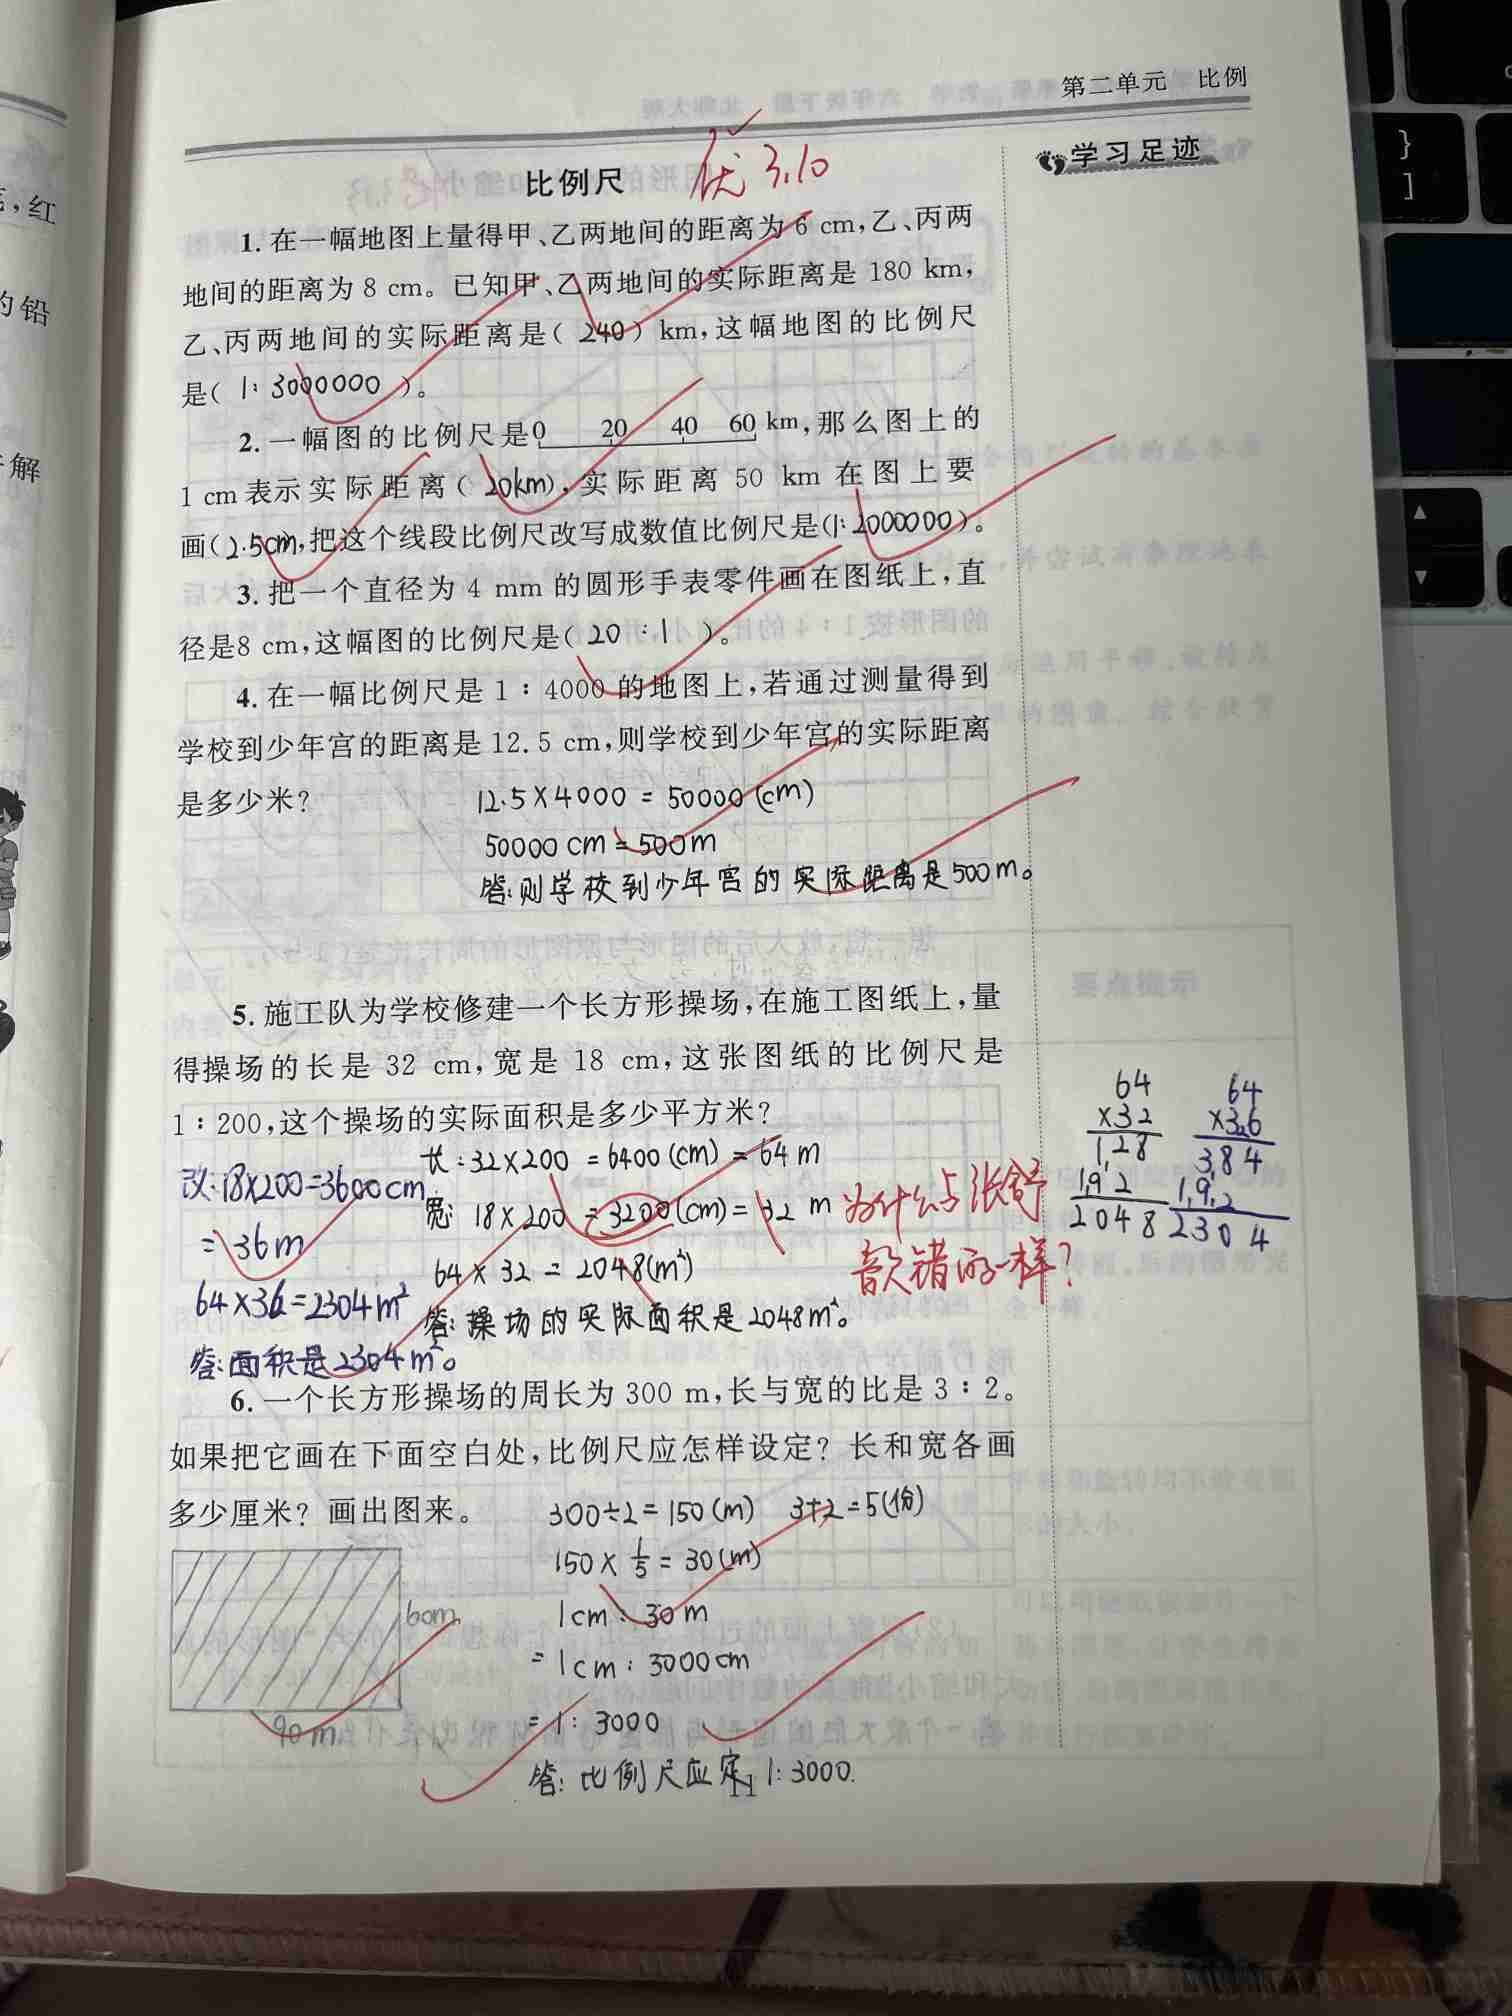 第二单元 比例
学习足迹
比例尺
优 3.10
1. 在一幅地图上量得甲、乙两地间的距离为 6 cm,乙、丙两
地间的距离为 8 cm。已知甲、乙两地间的实际距离是 180 km,
乙、丙两地间的实际距离是( 240 ) km,这幅地图的比例尺
是( 1:3000000 )。
2. 一幅图的比例尺是 0 20 40 60 km,那么图上的
1 cm 表示实际距离( 20km ),实际距离 50 km 在图上要
画( 2.5cm,把这个线段比例尺改写成数值比例尺是(1:2000000)。
3. 把一个直径为 4 mm 的圆形手表零件画在图纸上,直
径是8 cm,这幅图的比例尺是( 20:1 )。
4. 在一幅比例尺是 1∶4000 的地图上,若通过测量得到
学校到少年宫的距离是 12.5 cm,则学校到少年宫的实际距离
是多少米?
12.5×4000=50000(cm)
50000cm=500m
答:则学校到少年宫的实际距离是500m。
5. 施工队为学校修建一个长方形操场,在施工图纸上,量
得操场的长是 32 cm,宽是 18 cm,这张图纸的比例尺是
1∶200,这个操场的实际面积是多少平方米?
长:32×200=6400(cm)=64m
宽:18×200=3200(cm)=32m
64×32=2048(m²)
答:操场的实际面积是2048m²。
改:18×200=3600cm
=36m
64×36=2304m²
答:面积是2304m²。
为什么与张舒
韵错的一样?
64
×32
128
192
2048
64
×36
384
192
2304
6. 一个长方形操场的周长为 300 m,长与宽的比是 3∶2。
如果把它画在下面空白处,比例尺应怎样设定? 长和宽各画
多少厘米? 画出图来。
300÷2=150(m) 3+2=5(份)
150×1/5=30(m)
1cm:30m
=1cm:3000cm
=1:3000
答:比例尺应定1:3000.
60m
90m
11